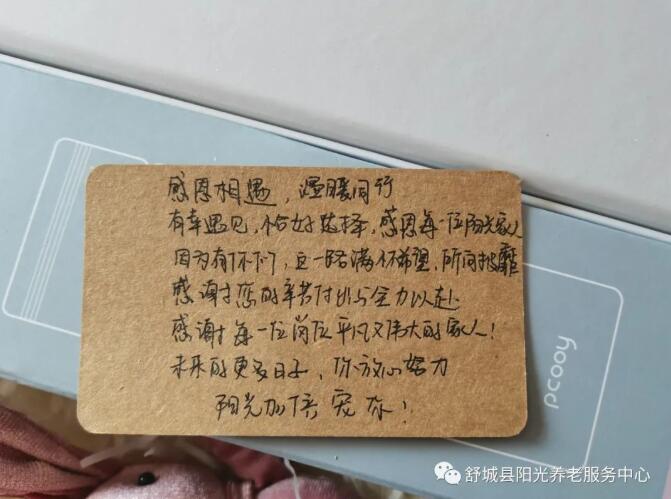 感恩相遇，温暖同行
有幸遇见，恰好选择，感恩每一位阳光家人
因为有你们，这一路满怀希望，所向披靡
感谢您的辛苦付出与全力以赴
感谢每一位岗位平凡又伟大的家人！
未来的更多日子，你放心努力
阳光加倍宠你！
pcooy
舒城县阳光养老服务中心